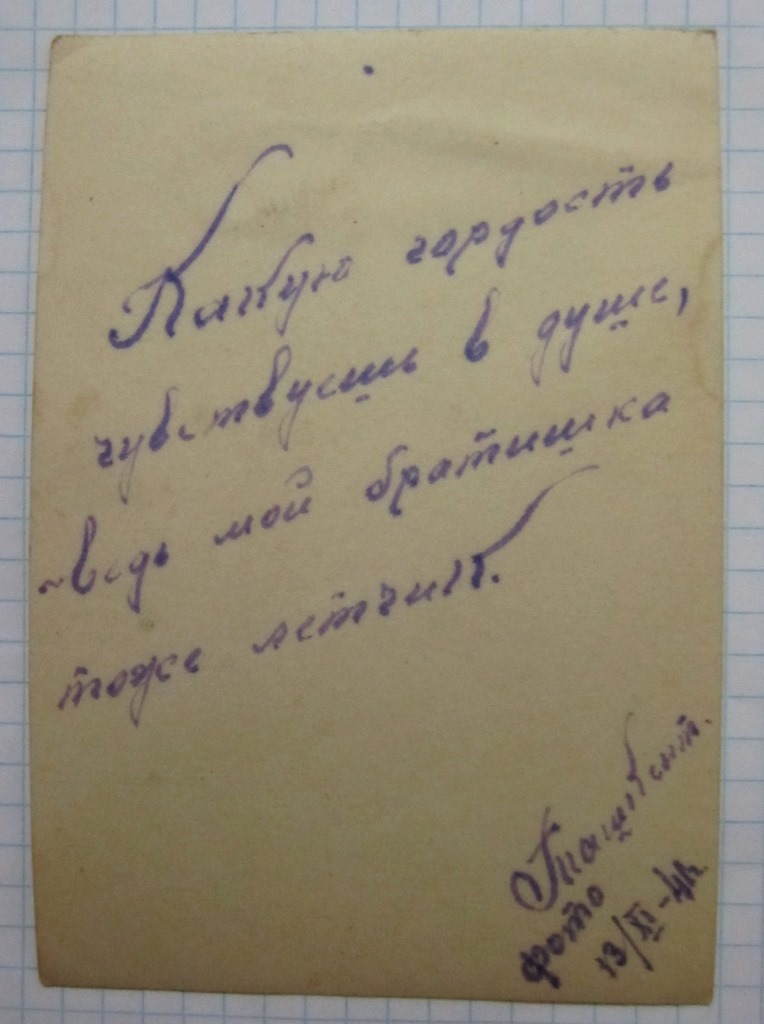 Какую гордость
чувствуешь в душе,
~ведь мой братишка
тоже летчик.
Ташкент.
фото
13/XI-41г.